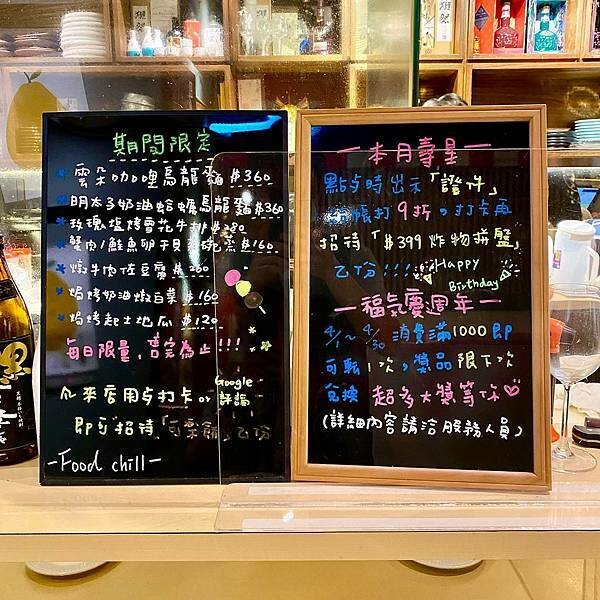 期間限定
雲朵咖哩烏龍麵 $360
明太子奶油蛤蠣烏龍麵 $360
玫瑰塩烤雪花牛排 $280
蟹肉/鮭魚卵干貝茶碗蒸 $160
燉牛肉佐豆腐 $260
焗烤奶油燉白菜 $160
焗烤起士地瓜 $120
每日限量,售完為止!!!
來店用餐打卡or Google評論
即可招待「可樂餅」乙份
-Food chill-
一本月壽星一
點餐時出示「證件」
結帳打9折,打卡再
招待「$399炸物拼盤」
乙份!!!
Happy Birthday
一福氣慶週年一
4/1~4/30 消費滿1000即
可轉1次,獎品限下次
兌換 超多大獎等你
(詳細內容請洽服務人員)